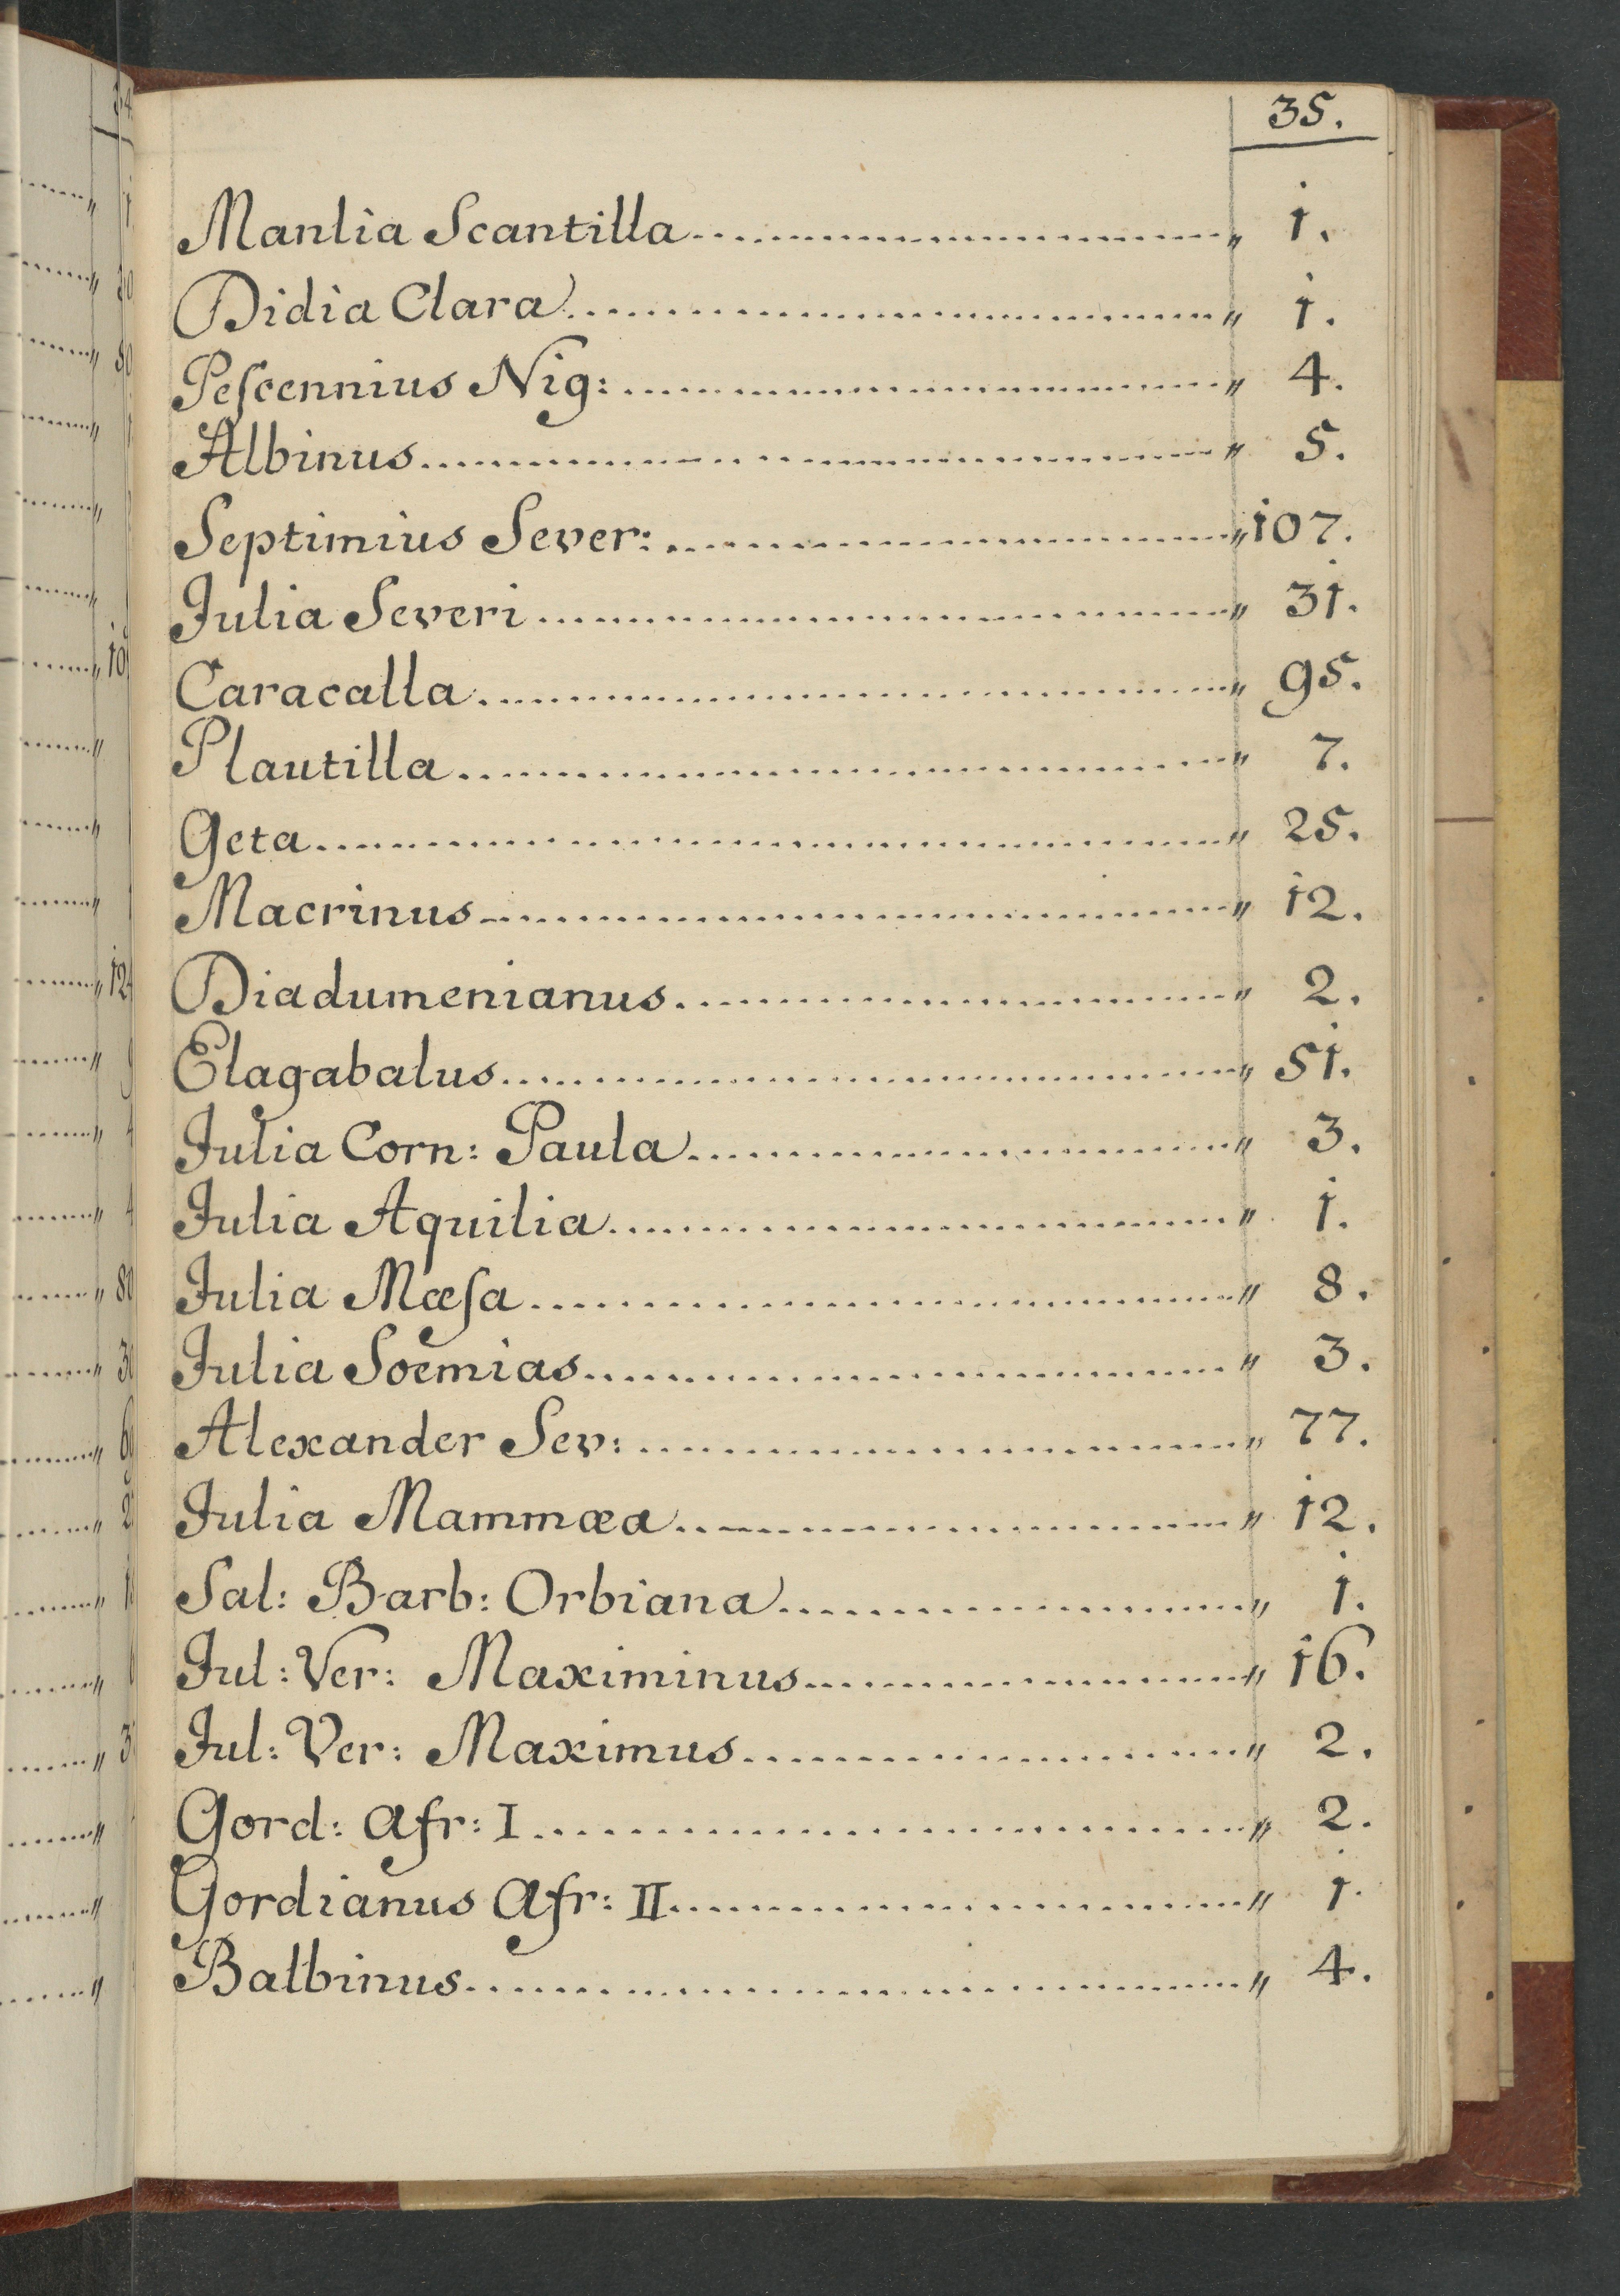 35.
Manlia Scantilla......................„ 1.
Didia Clara......................„ 1.
Peſcennius Nig: ......................„ 4.
Albinus......................„ 5.
Septimius Sever: ......................„ 107.
Julia Severi......................„ 31.
Caracalla......................„ 95.
Plautilla......................„ 7.
Geta......................„ 25.
Macrinus......................„ 12.
Diadumenianus......................„ 2.
Elagabalus......................„ 51.
Julia Corn: Paula......................„ 3.
Julia Aquilia......................„ 1.
Julia Mæſa......................„ 8.
Julia Soëmias......................„ 3.
Alexander Sev: ......................„ 77.
Julia Mammæa......................„ 12.
Sal: Barb: Orbiana......................„ 1.
Jul: Ver: Maximinus......................„ 16.
Jul: Ver: Maximus......................„ 2.
Gord: Afr: I......................„ 2.
Gordianus Afr: II......................„ 1.
Balbinus......................„ 4.